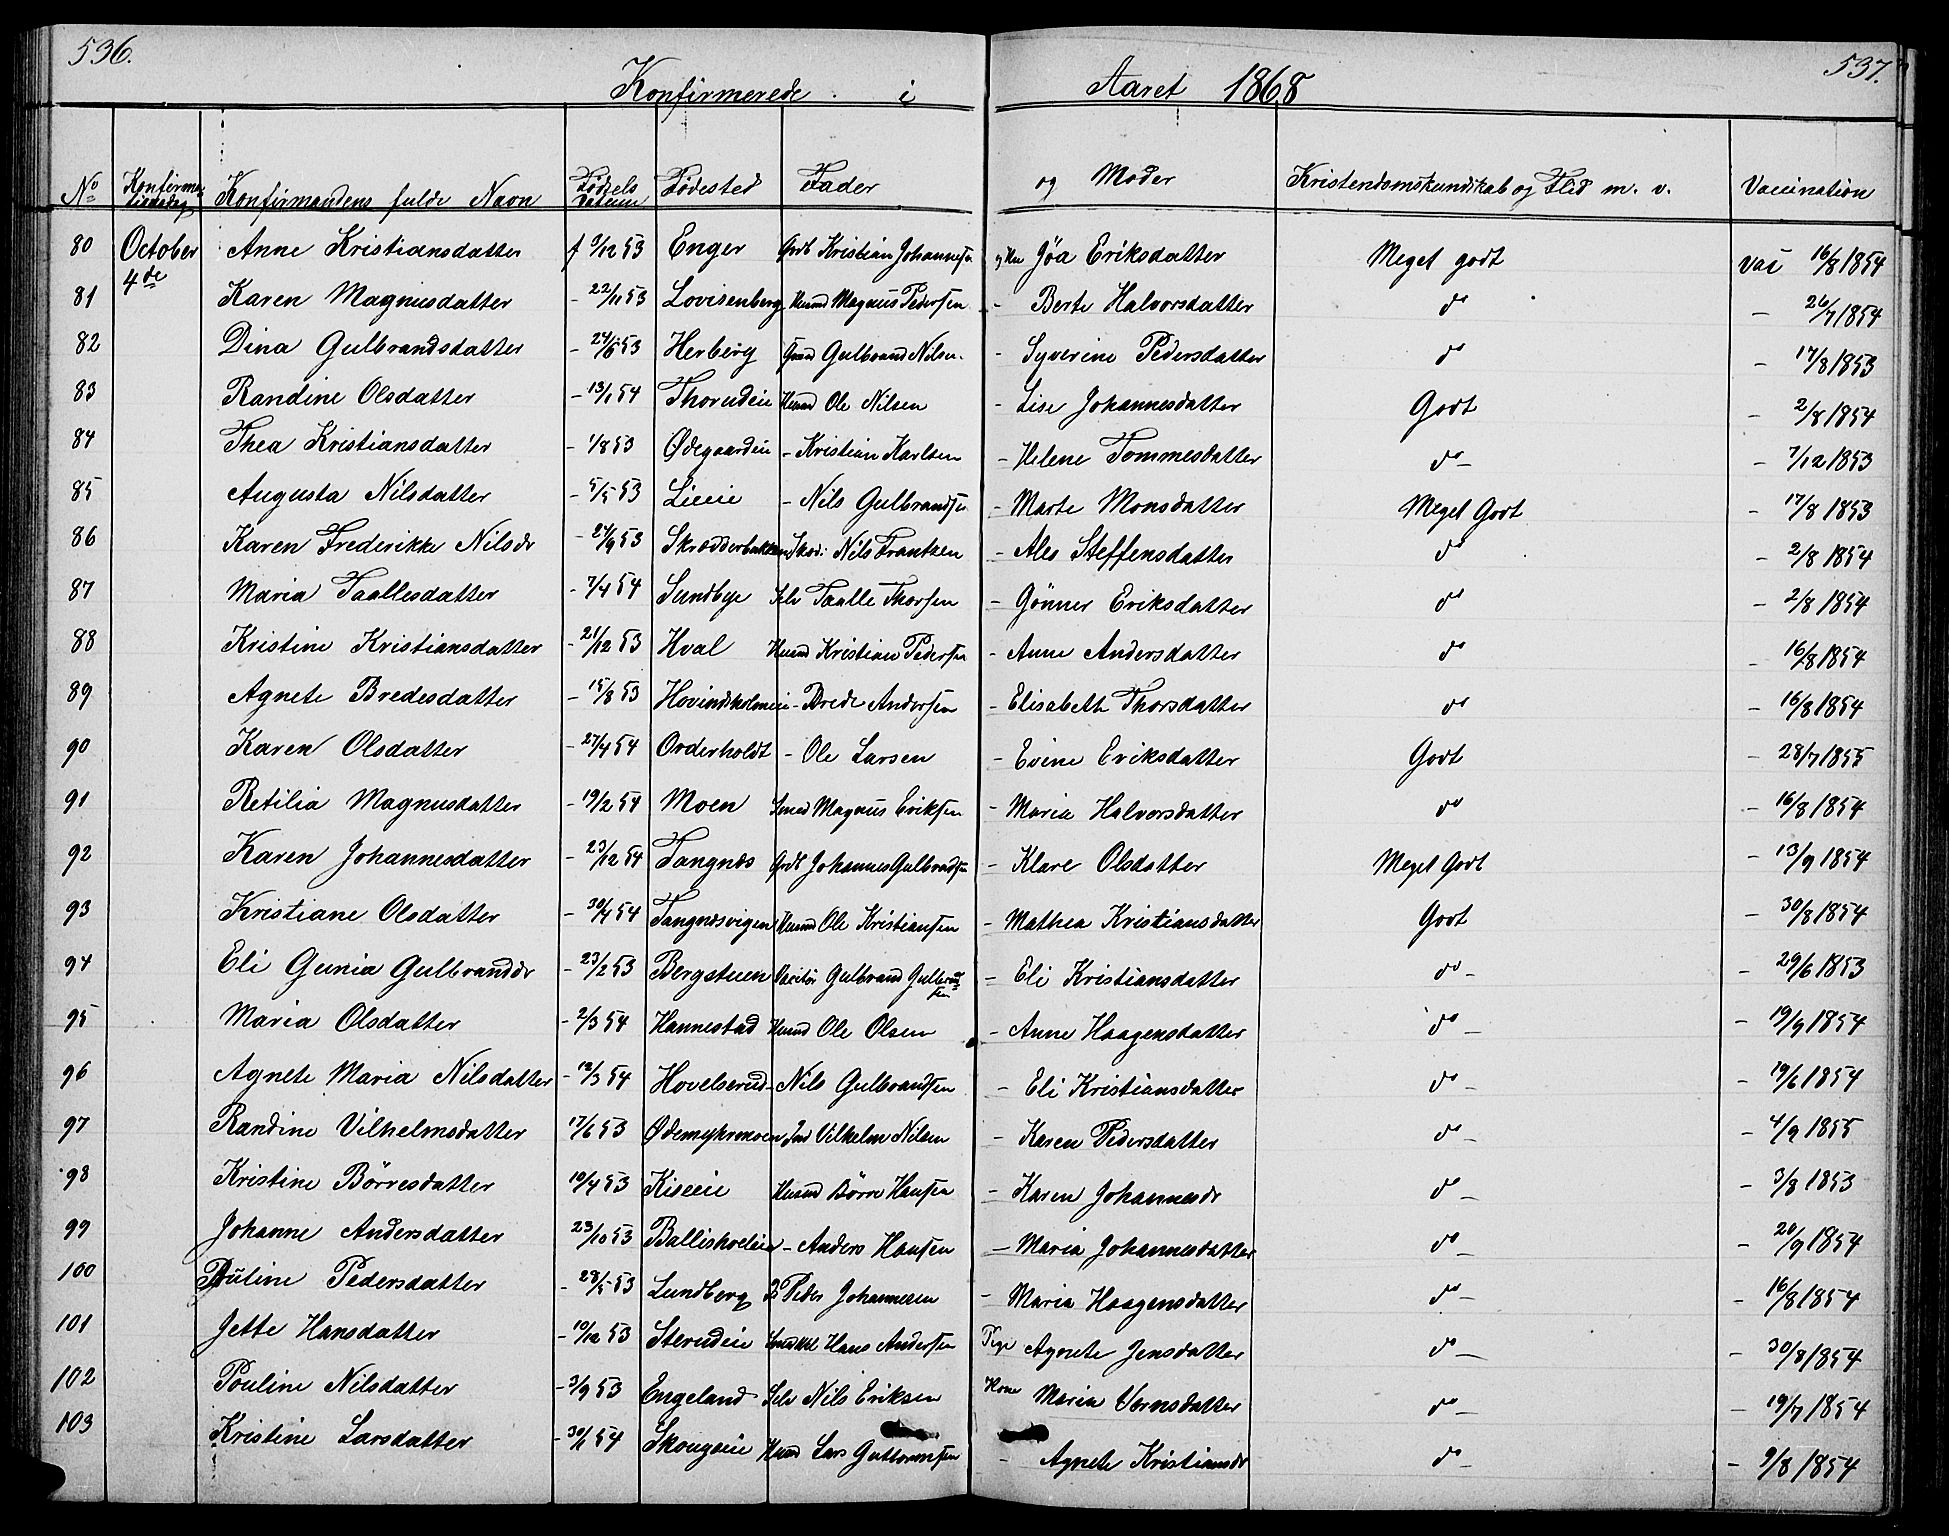 536. 537.
Konfirmerede i Aaret 1868
No Konfirmationsdag Konfirmandens fulde Navn Fødsels Datum Fødested Fader og Moder Kristendomskundskab og Flid m. v. Vaccination
80 October Anne Kristiansdatter f 9/12 53 Enger Grdb Kristian Johannesen og Kne Jöa Eriksdatter Meget godt vac 16/8 1854
4de
81 Karen Magnusdatter - 22/11 53 Lovisenberg Husmd Magnus Pedersen - Berte Halvorsdatter do - 26/7 1854
82 Dina Gulbrandsdatter - 24/6 53 Herberg Gulbrand Nilsen - Syverine Pedersdatter do - 17/8 1853
83 Randine Olsdatter - 13/1 54 Thorudeie Husmd Ole Nilsen - Lise Johannesdatter Godt - 2/8 1854
84 Thea Kristiansdatter - 1/8 53 Ødegaardeie - Kristian Karlsen - Helene Tommesdatter do - - 7/12 1853
85 Augusta Nilsdatter - 5/5 53 Lieeie - Nils Gulbrandsen - Marte Monsdatter Meget Godt - 17/8 1853
86 Karen Frederikke Nilsdr - 24/9 53 Skrædderbakken Skrd: Nils Frantzen - Ales Steffensdatter do - 2/8 1854
87 Maria Taallesdatter - 7/4 54 Sundbye Selv Taalle Thorsen - Gönner Eriksdatter do - 2/8 1854
88 Kristine Kristiansdatter - 21/12 53 Hval Husmd Kristian Pedersen - Anne Andersdatter do - 16/8 1854
89 Agnete Bredesdatter - 15/8 53 Hovindsholmeie - Brede Andersen - Elisabeth Thorsdatter do - 16/8 1854
90 Karen Olsdatter - 27/4 54 Orderholdt - Ole Larsen - Evine Eriksdatter Godt - 28/7 1855
91 Retilia Magnusdatter - 19/2 54 Moen Smed Magnus Eriksen - Maria Halvorsdatter do - 16/8 1854
92 Karen Johannesdatter - 23/12 54 Tangnes Grdb Johannes Gulbrandsen - Klare Olsdatter Meget Godt - 13/9 1854
93 Kristiane Olsdatter - 30/4 54 Tangnesvigen Husmd Ole Kristiansen - Mathea Kristiansdatter Godt - 30/8 1854
94 Eli Gunia Gulbrandsdr - 23/2 53 Bergstuen Gulbrand Gulbrandsen - Eli Kristiansdatter do - - 29/6 1853
95 Maria Olsdatter - 2/3 54 Hannestad Husmd Ole Olsen - Anne Haagensdatter do - - 19/9 1854
96 Agnete Maria Nilsdatter - 12/3 54 Hovelserud - Nils Gulbrandsen - Eli Kristiansdatter do - - 19/6 1854
97 Randine Vilhelmsdatter 17/6 53 Ødemykremoen Ind Vilhelm Nilsen - Karen Pedersdatter do - - 4/9 1855
98 Kristine Börresdatter 10/4 53 Kiseeie Husmd Börre Hansen - Karen Johannesdr do - - 3/8 1853
99 Johanne Andersdatter 23/10 53 Ballishoeleie - Anders Hansen - Maria Johannesdatter do - - 20/9 1854
100 Pauline Pedersdatter - 28/5 53 Lundberg Peder Johannesen - Maria Haagensdatter do - - 16/8 1854
101 Jette Hansdatter - 10/12 53 Sterudeie Hans Andersen Pige Agnete Jensdatter do - - 30/8 1854
102 Pouline Nilsdatter - 3/9 53 Engeland Selv Nils Eriksen Kone Maria Vernsdatter do - - 19/7 1854
103 Kristine Larsdatter - 30/1 54 Skougeie Husmd Lars Guttormsen - Agnete Kristiansdr do - - 9/8 1854